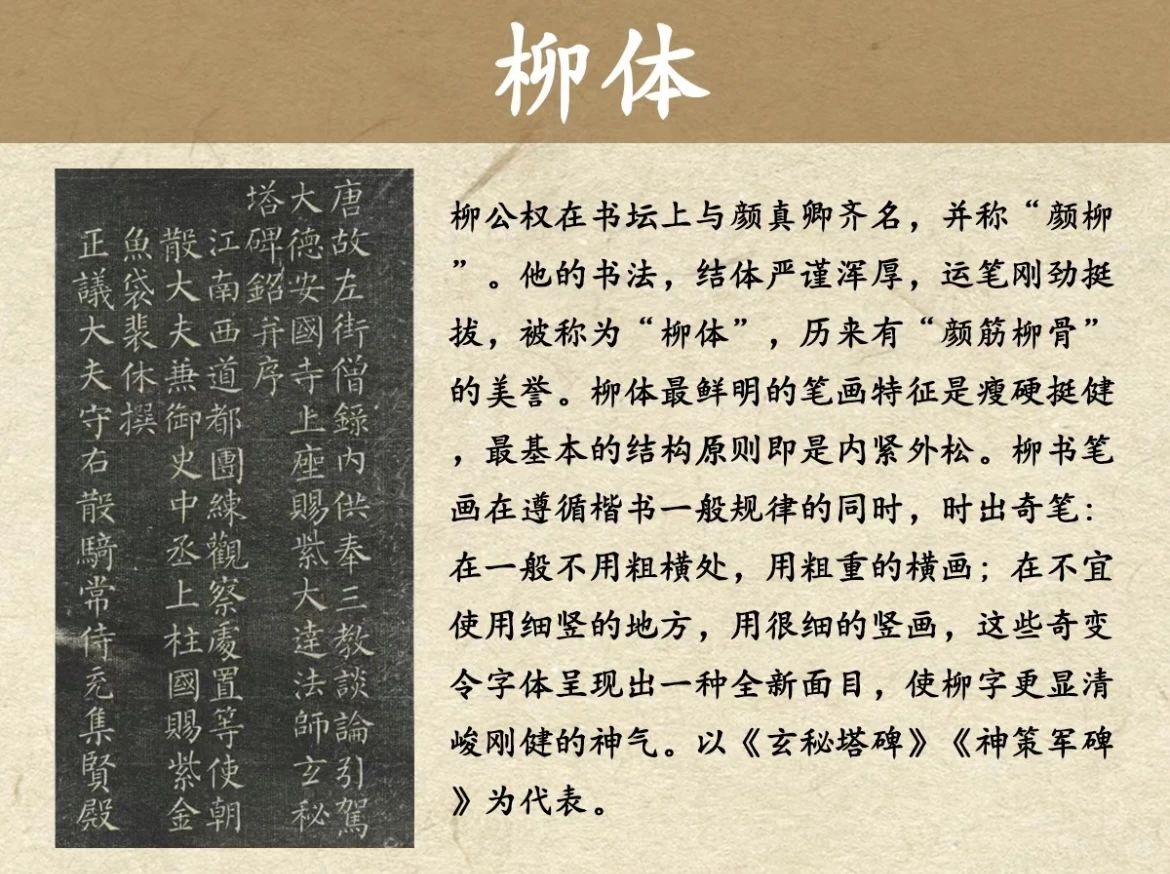 柳体
唐故左街僧錄内供奉三教談論引駕
大德安國寺上座賜紫大達法師玄秘
塔碑銘并序
江南西道都團練觀察處置等使朝
散大夫兼御史中丞上柱國賜紫金
魚袋裴休撰
正議大夫守右散騎常侍充集賢殿
柳公权在书坛上与颜真卿齐名，并称“颜柳
”。他的书法，结体严谨浑厚，运笔刚劲挺
拔，被称为“柳体”，历来有“颜筋柳骨”
的美誉。柳体最鲜明的笔画特征是瘦硬挺健
，最基本的结构原则即是内紧外松。柳书笔
画在遵循楷书一般规律的同时，时出奇笔：
在一般不用粗横处，用粗重的横画；在不宜
使用细竖的地方，用很细的竖画，这些奇变
令字体呈现出一种全新面目，使柳字更显清
峻刚健的神气。以《玄秘塔碑》《神策军碑
》为代表。